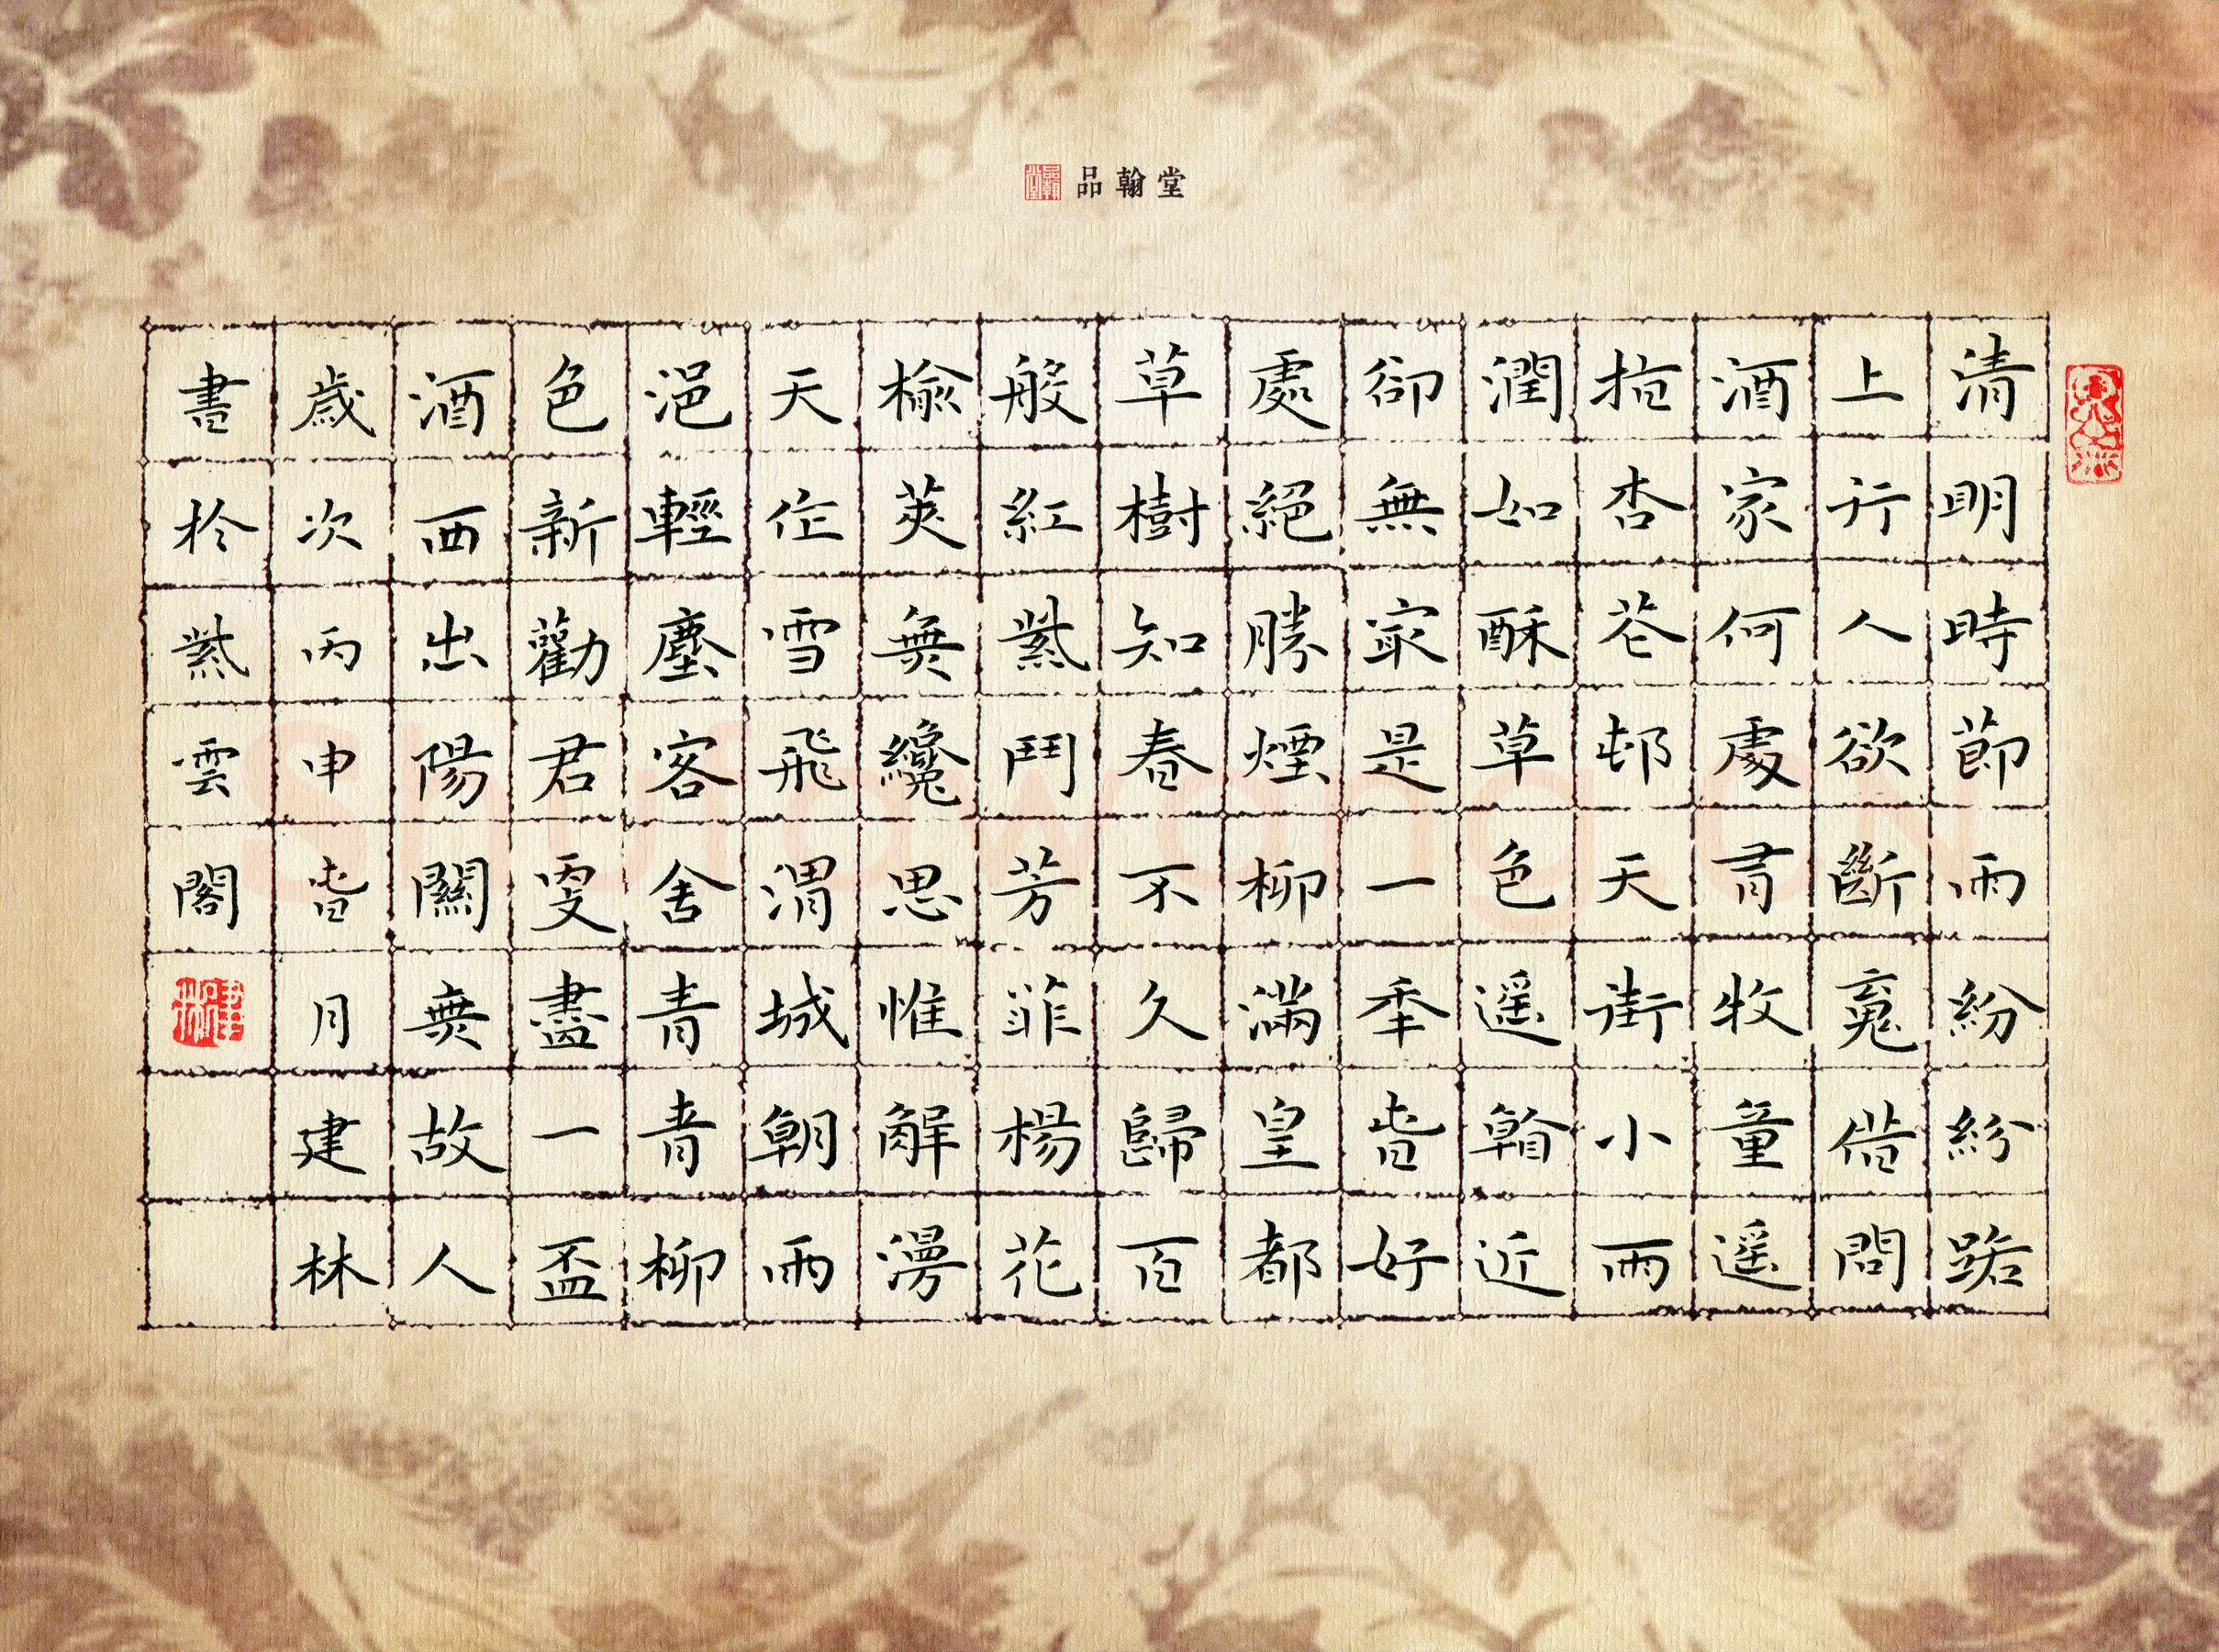 品翰堂
清明時節雨紛紛路
上行人欲斷魂借問
酒家何處有牧童遥
指杏花邨天街小雨
潤如酥草色遥看近
卻無最是一年春好
處絕勝煙柳滿皇都
草樹知春不久歸百
般紅紫鬥芳菲楊花
榆莢無纔思惟解漫
天作雪飛渭城朝雨
浥輕塵客舍青青柳
色新勸君更盡一杯
酒西出陽關無故人
歲次丙申春月建林
書於紫雲閣